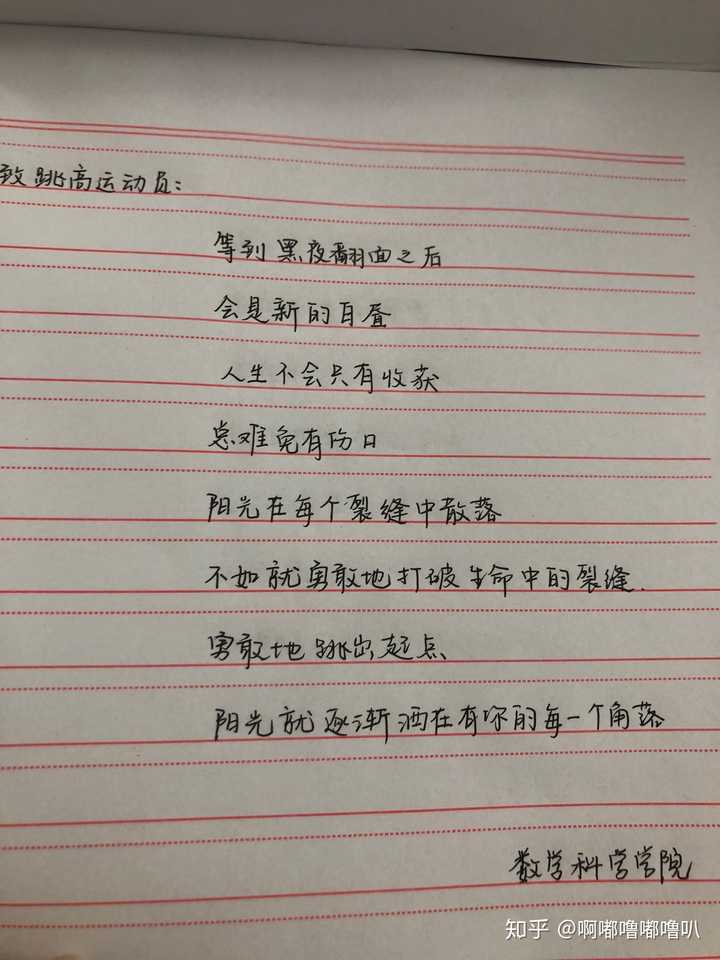 致跳高运动员：
等到黑夜翻面之后
会是新的白昼
人生不会只有收获
总难免有伤口
阳光在每个裂缝中散落
不如就勇敢地打破生命中的裂缝.
勇敢地跳出起点、
阳光就逐渐洒在有你的每一个角落
数学科学学院
知乎 @啊嘟噜嘟噜叭